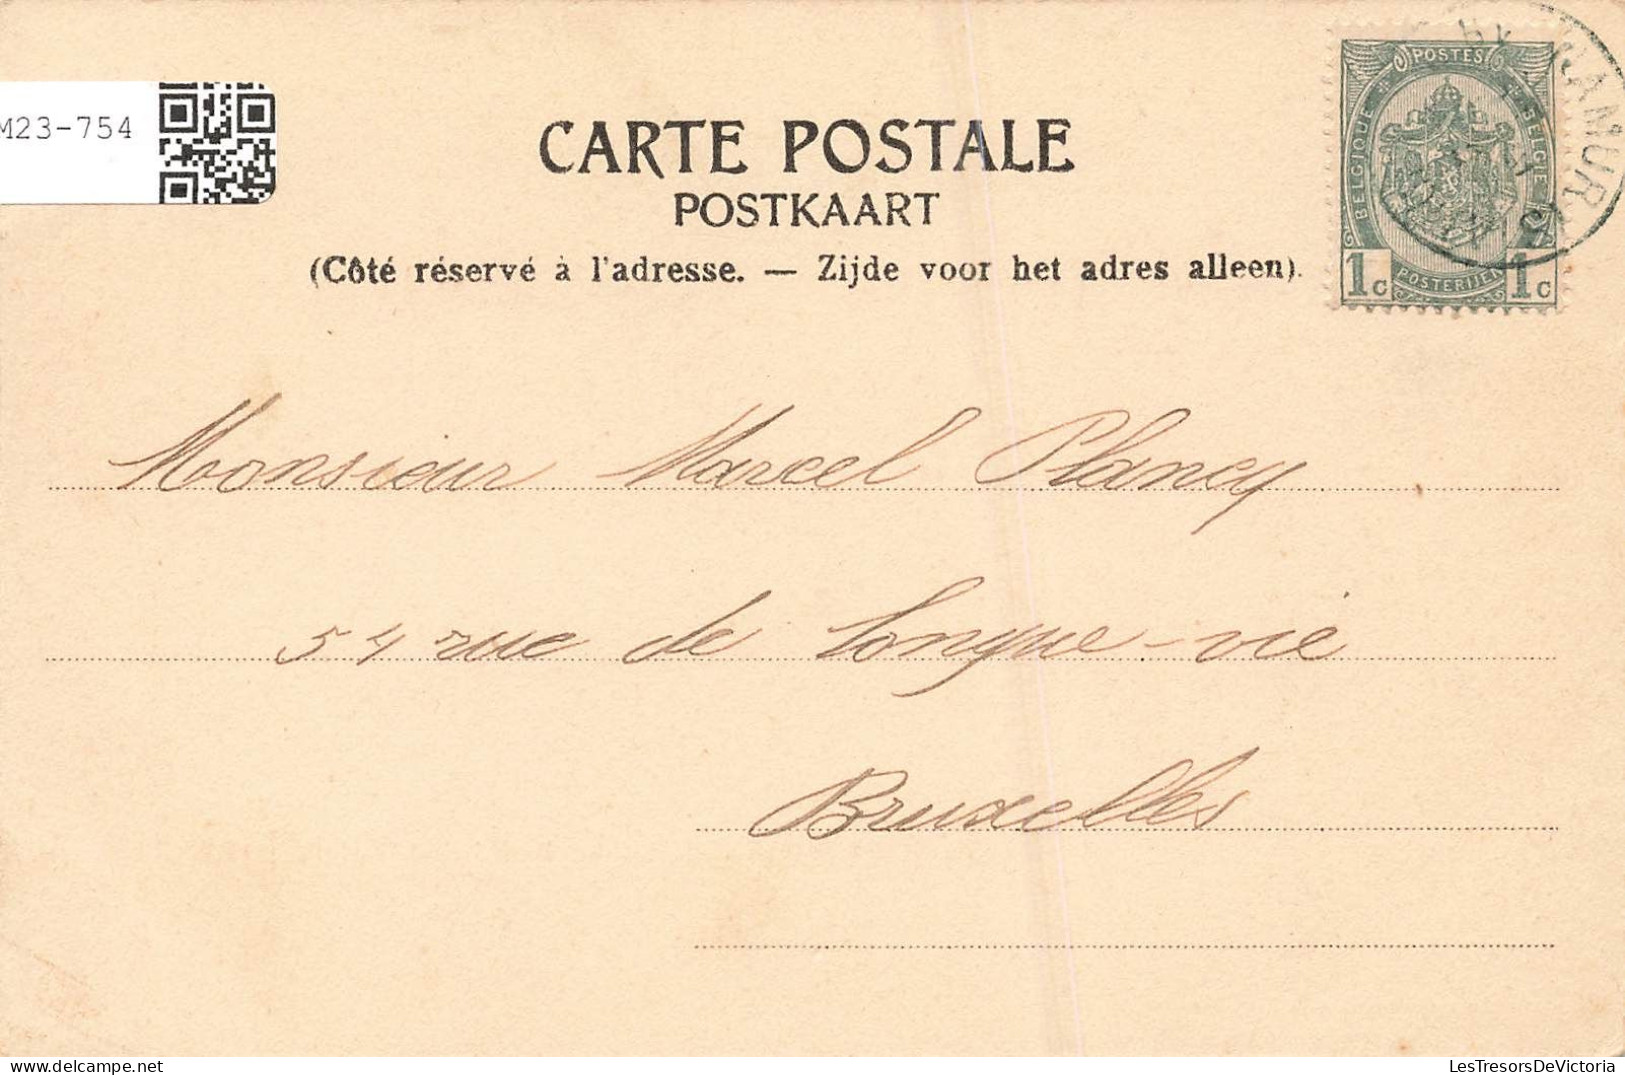 M23-754
CARTE POSTALE
POSTKAART
(Côté réservé à l'adresse. — Zijde voor het adres alleen).
POSTES
BELGIQUE
BELGIË
POSTERIJEN
1c 1c
NAMUR
Monsieur Marcel Plancq
54 rue de Longue-vie
Bruxelles
LesTresorsDeVictoria